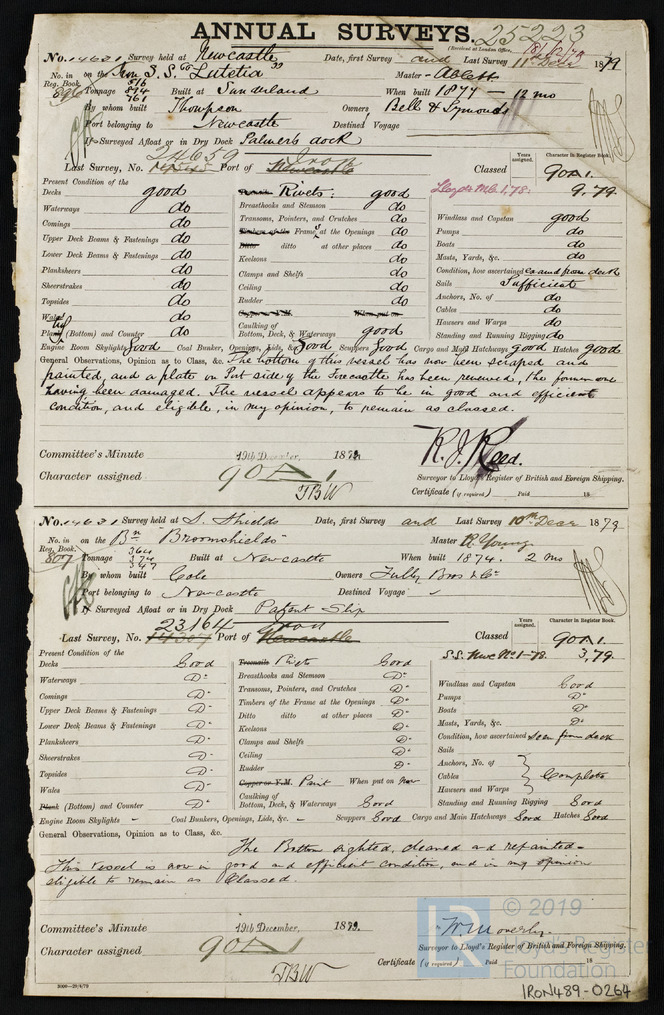 ANNUAL SURVEYS. 25223
(Received at London Office, 18/12/79
No. 14631 Survey held at Newcastle Date, first Survey and Last Survey 11th Dec 1879
No. in Reg. Book. 896 on the Iron S.S. "Lutetia" Master Ablett
Tonnage 816 814 761 Built at Sunderland When built 1877 — 12 mo
By whom built Thompson Owners Bell & Symonds
Port belonging to Newcastle Destined Voyage
If Surveyed Afloat or in Dry Dock Palmers dock
Last Survey, No. 24659 Port of Iron Newcastle Classed Years assigned. Character in Register Book. 90A1.
Lloyds M.C. 1.78. 9.79
Present Condition of the
Decks good Rivets: good
Waterways do Breasthooks and Stemson do Windlass and Capstan good
Comings do Transoms, Pointers, and Crutches do Pumps do
Upper Deck Beams & Fastenings do Timbers of the Frames at the Openings do Boats do
Lower Deck Beams & Fastenings do Ditto ditto at other places do Masts, Yards, &c. do
Planksheers do Keelsons do Condition, how ascertained examd from deck
Sheerstrakes do Clamps and Shelfs do Sails Sufficient
Topsides do Ceiling do Anchors, No. of do
Wales do Rudder do Cables do
Plank (Bottom) and Counter do Caulking of Bottom, Deck, & Waterways good Hawsers and Warps do
Standing and Running Rigging do
Engine Room Skylights Good Coal Bunker, Openings, Lids, &c Good Scuppers Good Cargo and Main Hatchways good Hatches good
General Observations, Opinion as to Class, &c. The bottom of this vessel has now been scraped and
painted, and a plate on Port side of the Forecastle has been renewed, the former one
having been damaged. The vessel appears to be in good and efficient
condition, and eligible, in my opinion, to remain as classed.
Committee's Minute 19th December, 1879.
R. J. Reed.
Character assigned 90A1
Surveyor to Lloyd's Register of British and Foreign Shipping.
TBW Certificate (if required) Paid 18
No. 14631 Survey held at S. Shields Date, first Survey and Last Survey 10th Decr 1879
No. in Reg. Book. 807 on the Bn "Broomshields" Master R. Young
Tonnage 364 374 347 Built at Newcastle When built 1874. 2 mo
By whom built Cole Owners Tully Bros & Co
Port belonging to Newcastle Destined Voyage
If Surveyed Afloat or in Dry Dock Patent Slip
Last Survey, No. 23164 Port of Iron Newcastle Classed Years assigned. Character in Register Book. 90A1.
S.S. Nwc No 1-78. 3,79
Present Condition of the
Decks Good Treenails Rivets Good
Waterways Do Breasthooks and Stemson Do Windlass and Capstan Good
Comings Do Transoms, Pointers, and Crutches Do Pumps Do
Upper Deck Beams & Fastenings Do Timbers of the Frame at the Openings Do Boats Do
Lower Deck Beams & Fastenings Do Ditto ditto at other places Do Masts, Yards, &c. Do
Planksheers Do Keelsons Do Condition, how ascertained seen from deck
Sheerstrakes Do Clamps and Shelfs Do Sails
Topsides Do Ceiling Do Anchors, No. of
Wales Do Rudder Do Cables Complete
Plank (Bottom) and Counter Do Copper or Y.M. Paint When put on Now Hawsers and Warps
Caulking of Bottom, Deck, & Waterways Good Standing and Running Rigging Good
Engine Room Skylights - Coal Bunkers, Openings, Lids, &c. - Scuppers Good Cargo and Main Hatchways Good Hatches Good
General Observations, Opinion as to Class, &c.
The Bottom sighted, cleaned and repainted -
This vessel is now in good and efficient condition, and in my opinion
eligible to remain as Classed.
Committee's Minute 19th December, 1879.
Character assigned 90A1
Surveyor to Lloyd's Register of British and Foreign Shipping.
TBW Certificate (if required) Paid 18
© 2019
Lloyd's Register
Foundation
LR
IRON489-0264